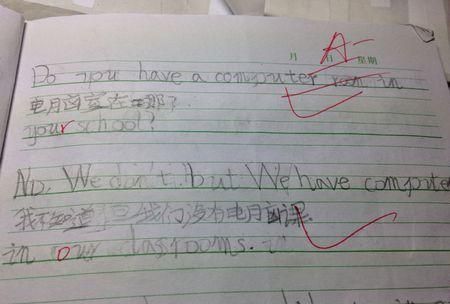 月 日 星期
A-
Do you have a computer room in
电月囱室在哪了
your school?
No, We don't. but We have compute
我不知道 但我们没有电月囱课
in our classrooms. in